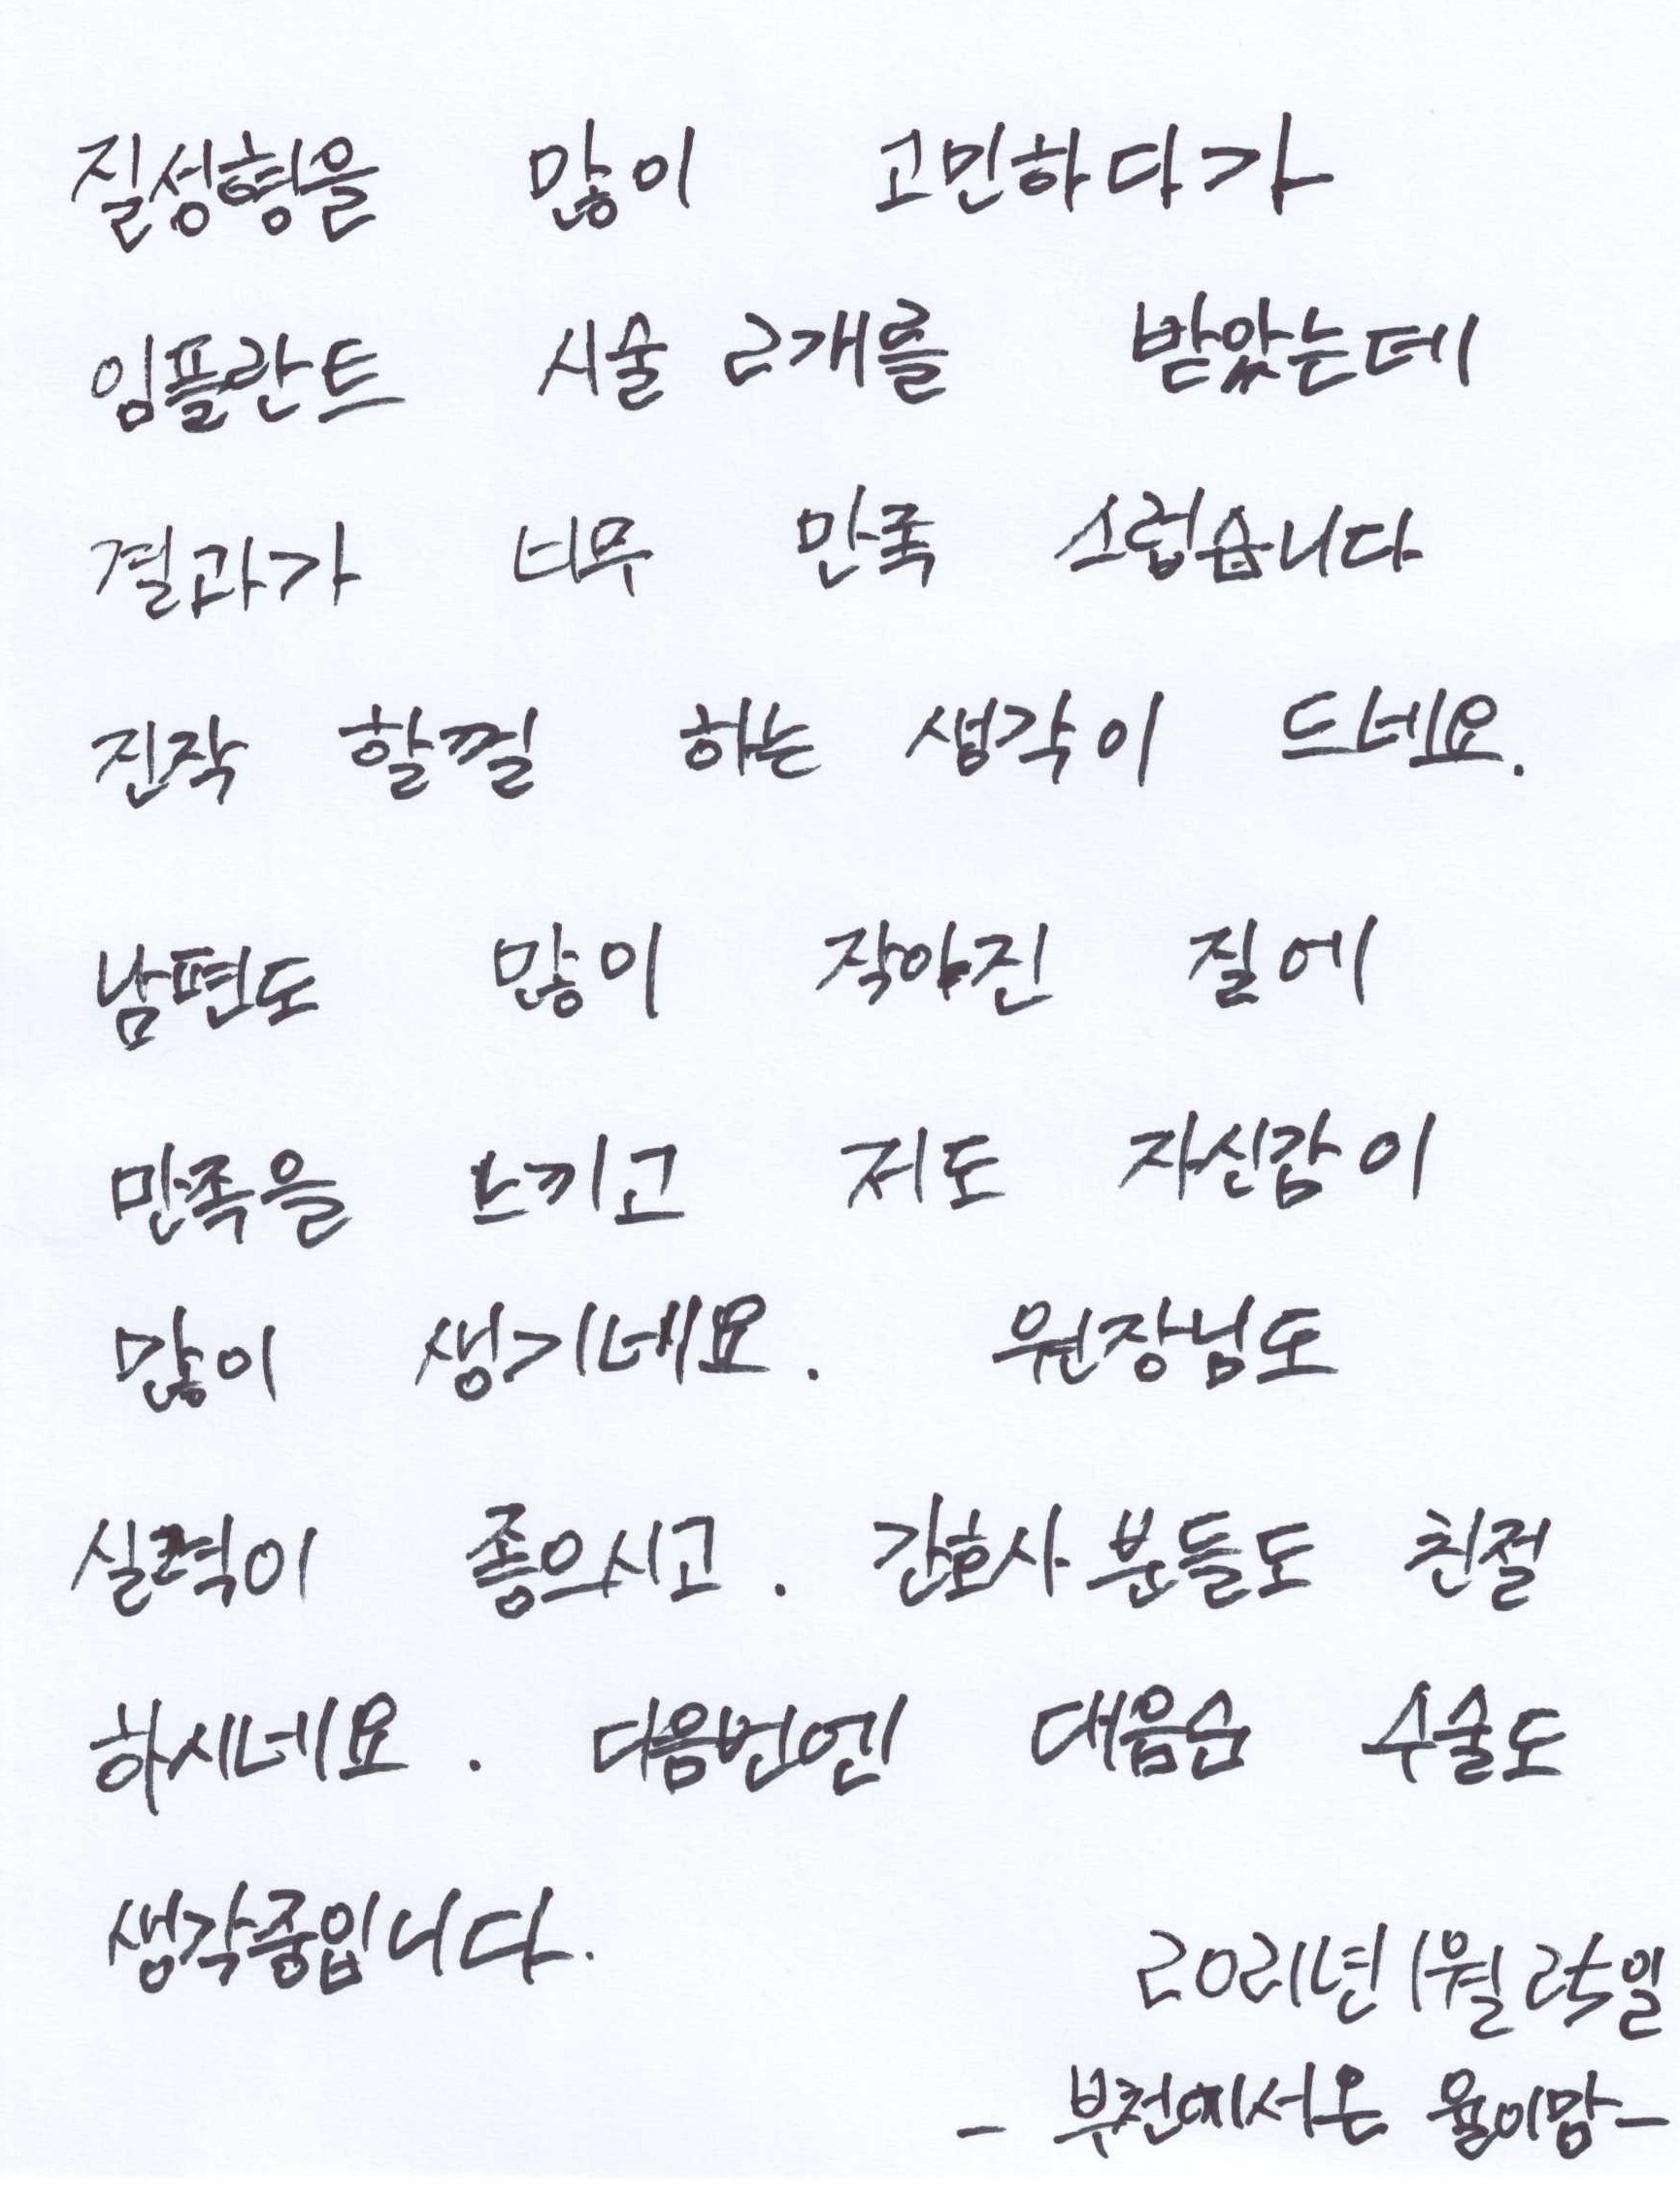 질성형을 많이 고민하다가
임플란트 시술 2개를 받았는데
결과가 너무 만족 스럽습니다
진작 할껄 하는 생각이 드네요.
남편도 많이 작아진 질에
만족을 느끼고 저도 자신감이
많이 생기네요. 원장님도
실력이 좋으시고. 간호사분들도 친절
하시네요. 다음번엔 대음순 수술도
생각중입니다.
2021년 1월 25일
- 부천에서온 율이맘 -